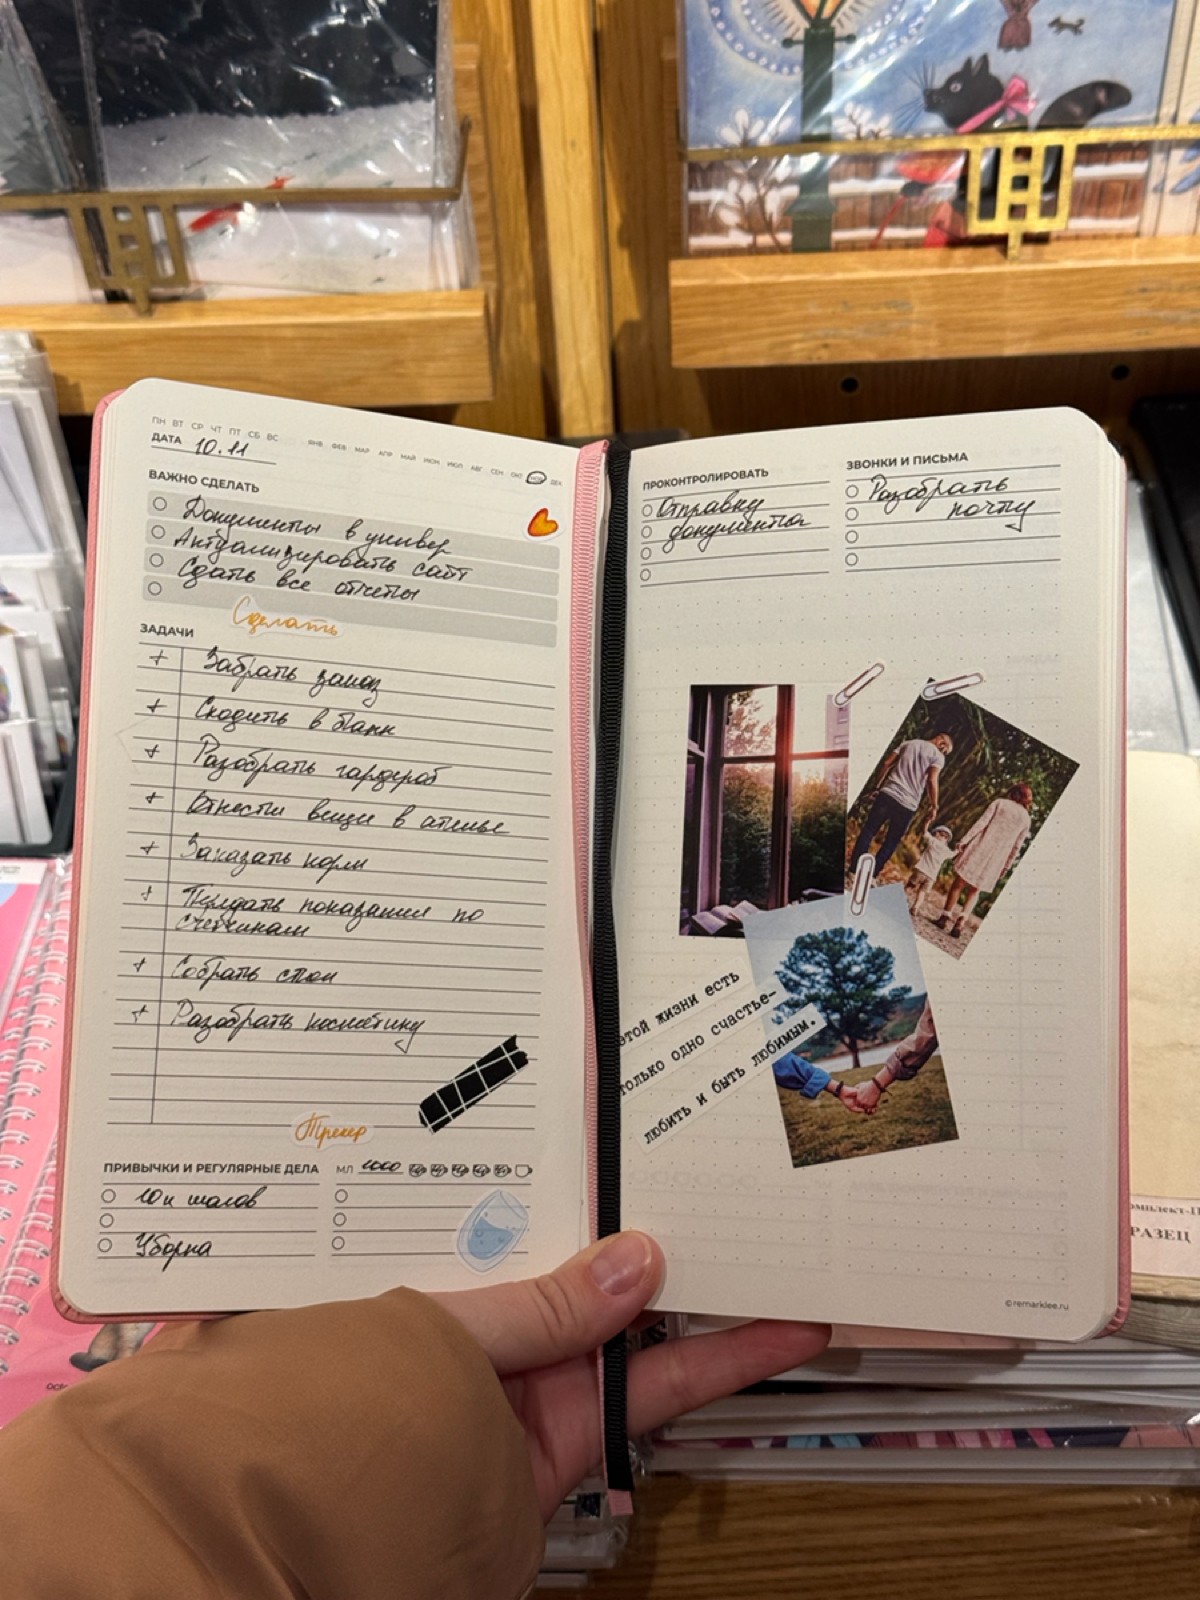 ПН ВТ СР ЧТ ПТ СБ ВС
ЯНВ ФЕВ МАР АПР МАЙ ИЮН ИЮЛ АВГ СЕН ОКТ НОЯ ДЕК
ДАТА 10.11
ВАЖНО СДЕЛАТЬ
Документы в универ
Актуализировать сайт
Сдать все отчеты
Сделать
ЗАДАЧИ
+ Забрать заказ
+ Сходить в банк
+ Разобрать гардероб
+ Отнести вещи в ателье
+ Заказать корм
+ Передать показания по
счетчикам
+ Собрать стол
+ Разобрать косметику
Трекер
ПРИВЫЧКИ И РЕГУЛЯРНЫЕ ДЕЛА
10к шагов
Уборка
МЛ 1000
ПРОКОНТРОЛИРОВАТЬ
Отправку
документа
ЗВОНКИ И ПИСЬМА
Разобрать
почту
этой жизни есть
только одно счастье-
любить и быть любимым.
©remarklee.ru
РАЗЕЦ